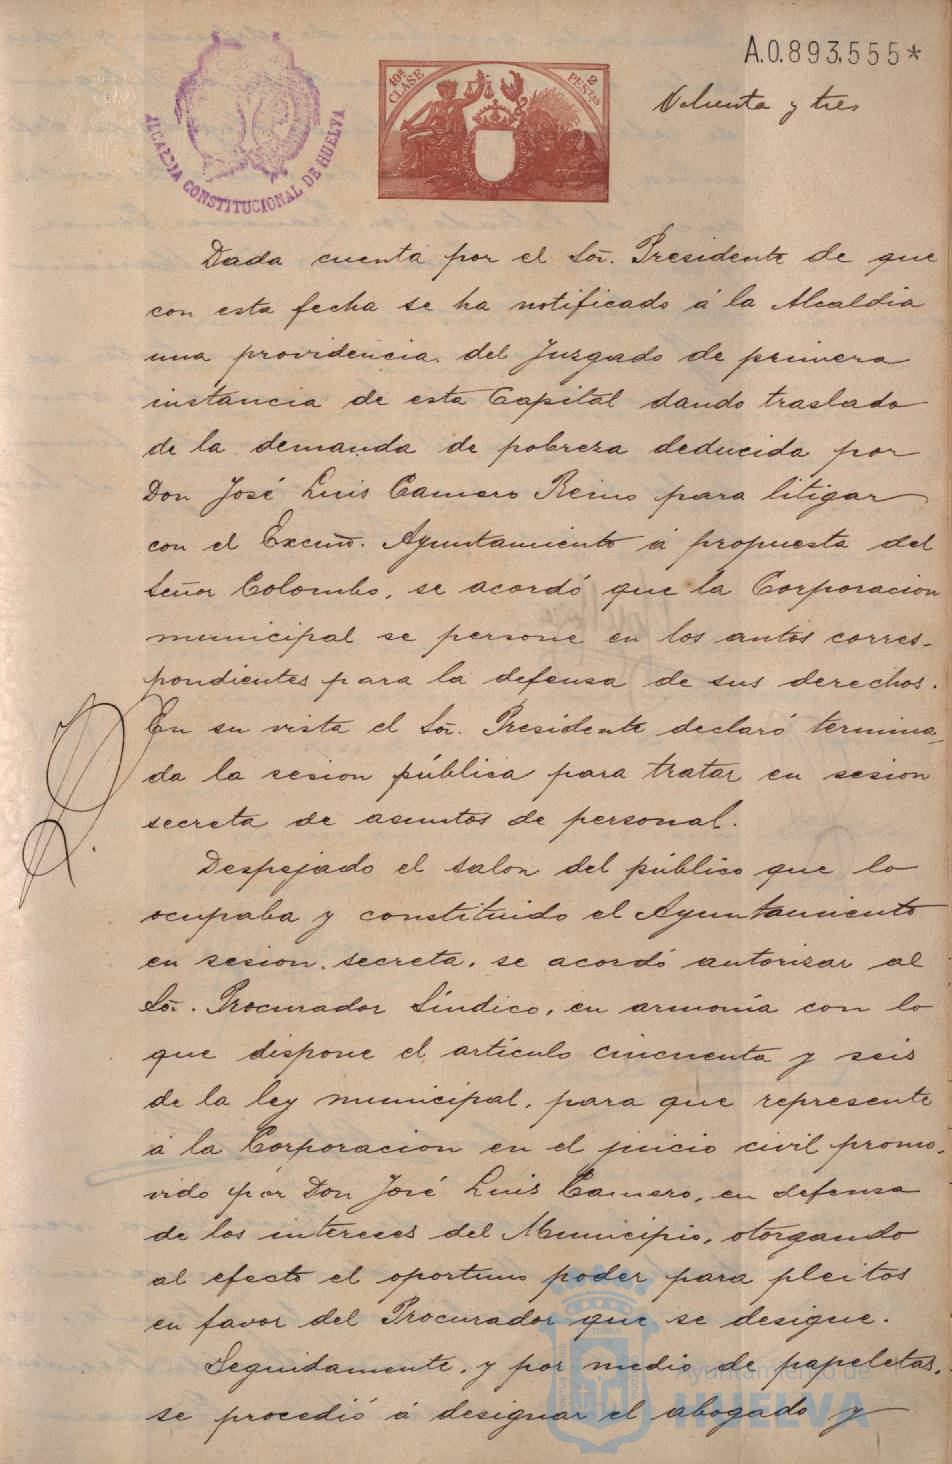 A.0.893,555*
10ª CLASE
2 PESTAS
ALCALDIA CONSTITUCIONAL DE HUELVA
Ochenta y tres
Dada cuenta por el Sor. Presidente de que
con esta fecha se ha notificado á la Alcaldia
una providencia del Juzgado de primera
instancia de esta Capital dando traslado
de la demanda de pobreza deducida por
Don José Luis Camero Reino para litigar
con el Excmo. Ayuntamiento á propuesta del
Señor Colombo, se acordó que la Corporacion
municipal se persone en los autos corres-
pondientes para la defensa de sus derechos.
En su vista el Sor. Presidente declaró termina-
da la sesion pública para tratar en sesion
secreta de asuntos de personal.
Despejado el salon del público que lo
ocupaba y constituido el Ayuntamiento
en sesion secreta, se acordó autorizar al
Sor. Procurador Síndico, en armonía con lo
que dispone el artículo cincuenta y seis
de la ley municipal, para que represente
á la Corporacion en el juicio civil promo-
vido por Don José Luis Camero, en defensa
de los intereses del Municipio, otorgando
al efecto el oportuno poder para pleitos
en favor del Procurador que se designe.
Seguidamente, y por medio de papeletas,
se procedió á designar el abogado y
Ayuntamiento de
HUELVA